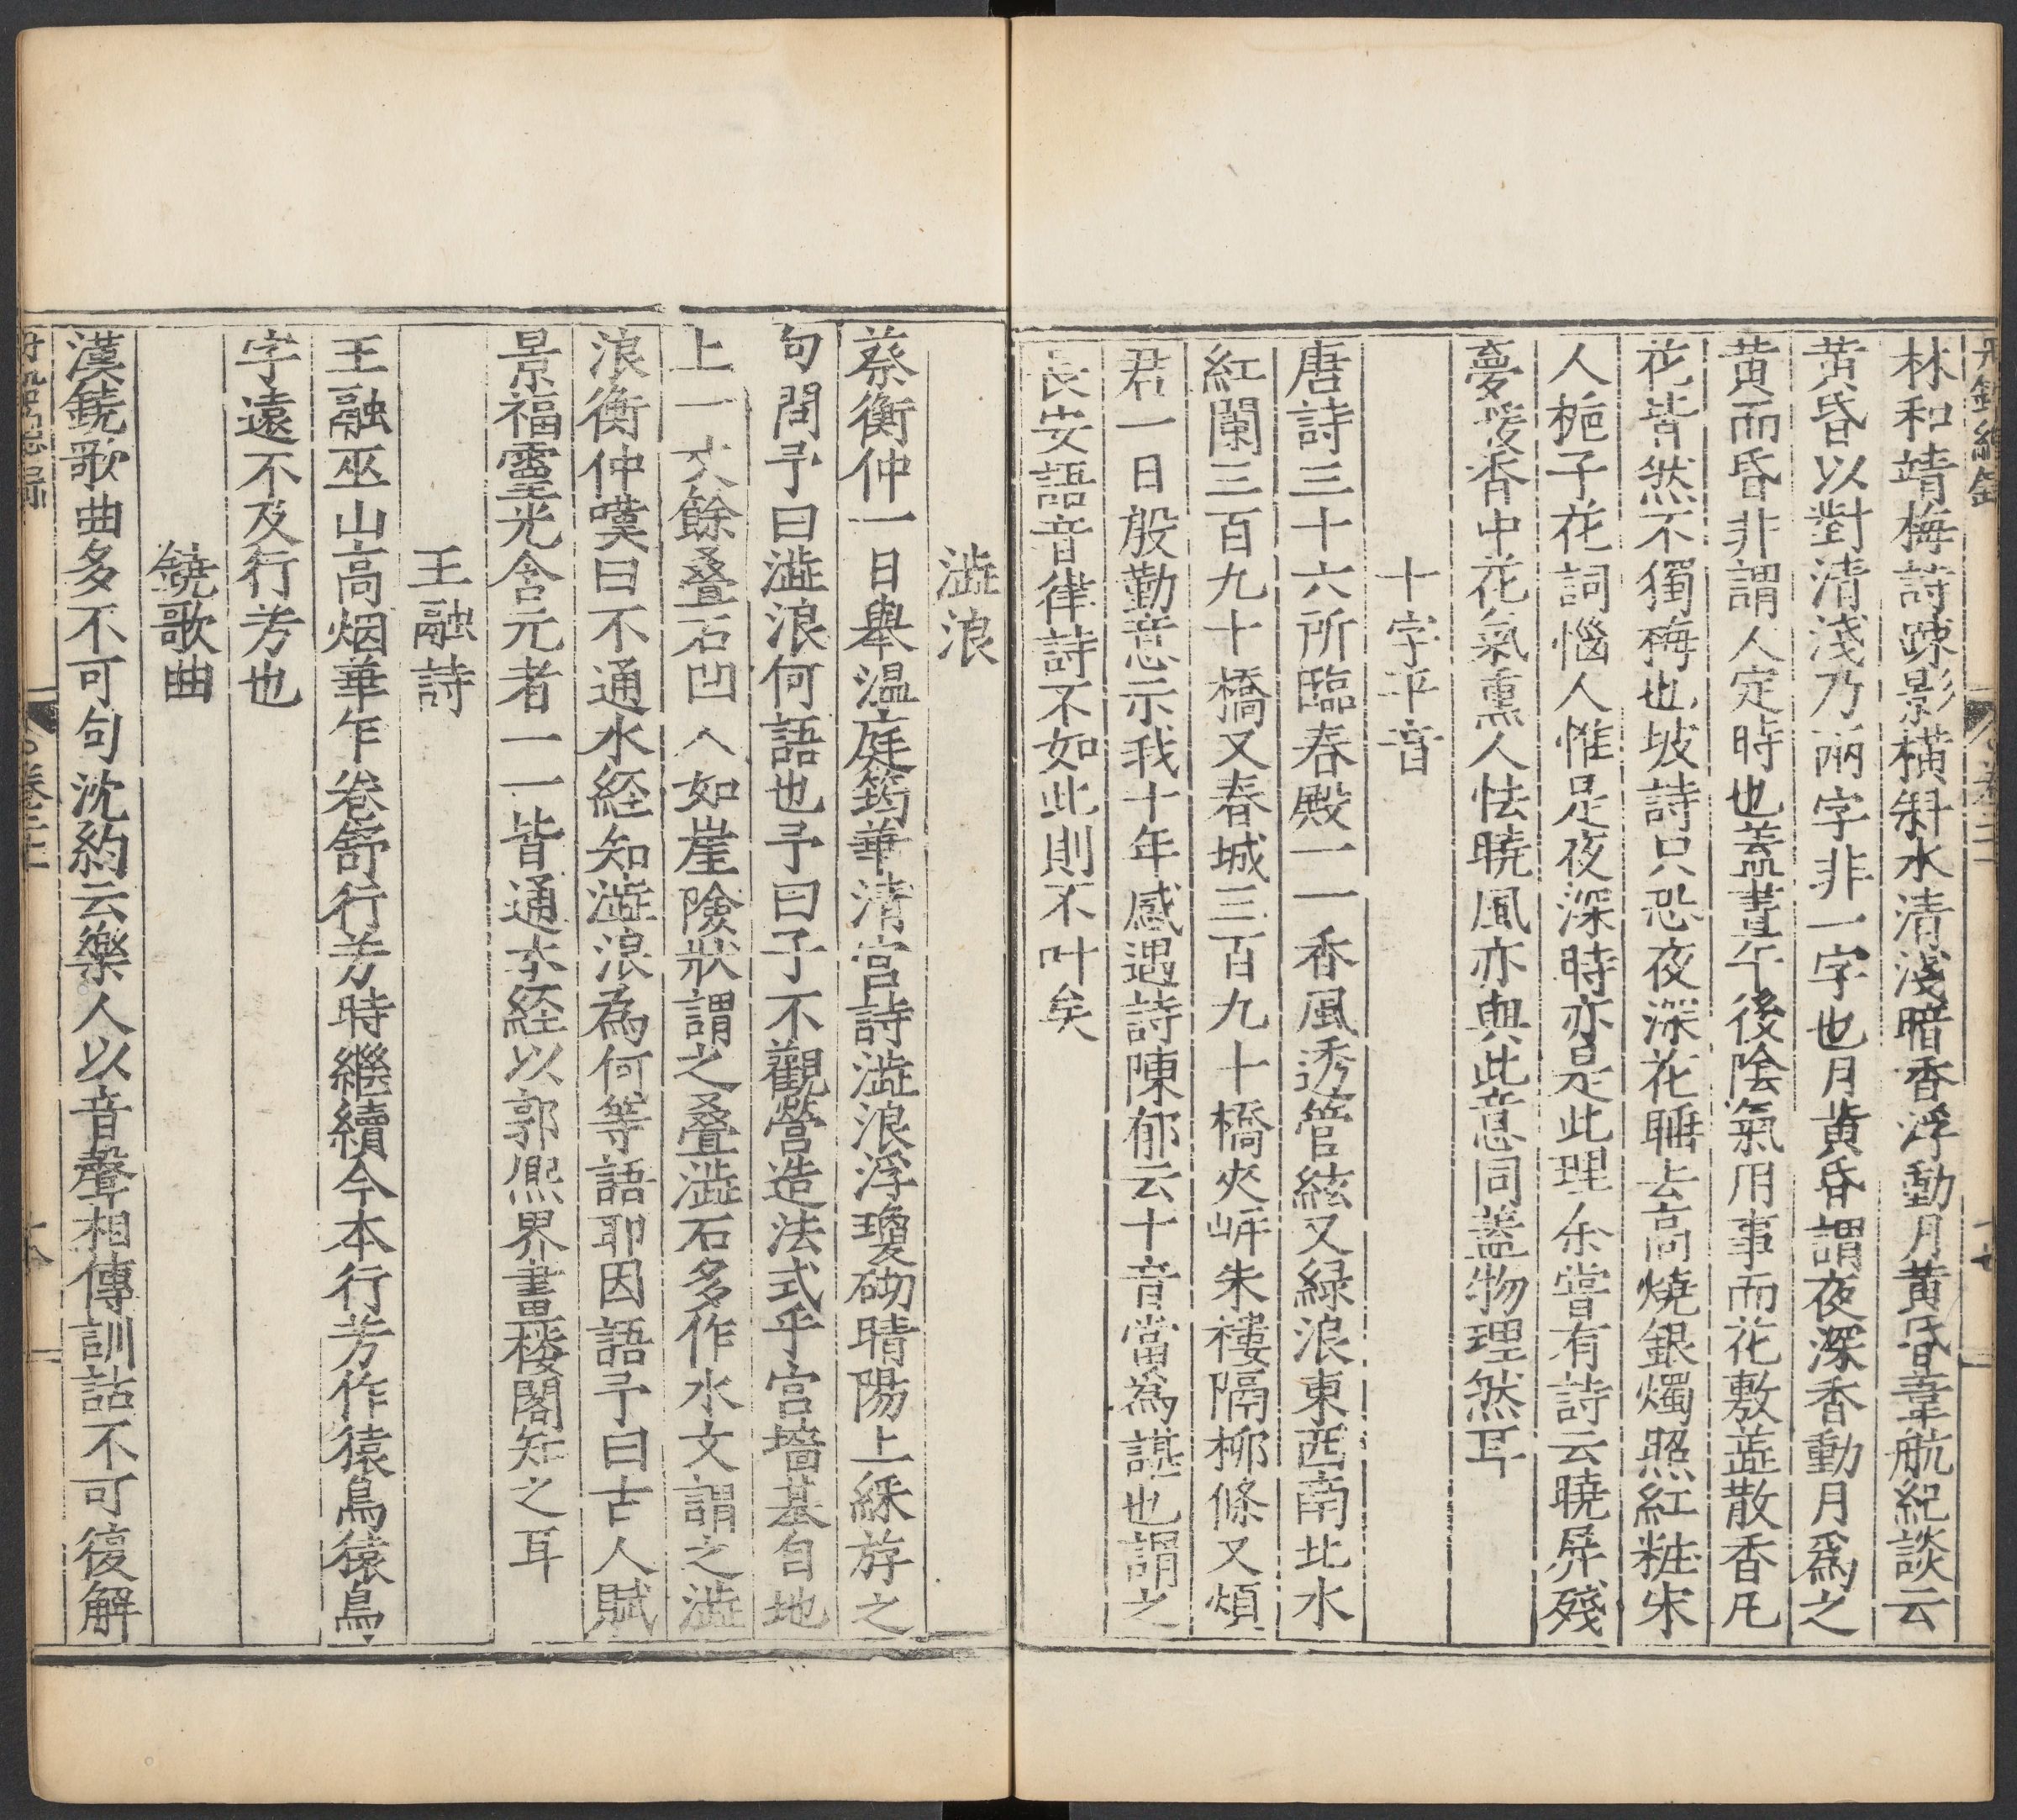 丹鉛總錄
卷二十
林和靖梅詩疎影橫斜水清淺暗香浮動月黃昏韋航紀談云
黃昏以對清淺乃兩字非一字也月黃昏謂夜深香動月爲之
黃而昏非謂人定時也蓋晝午後陰氣用事而花敷蕋散香凡
花皆然不獨梅也坡詩只恐夜深花睡去高燒銀燭照紅粧宋
人梔子花詞惱人惟是夜深時亦是此理余嘗有詩云曉屏殘
夢煖香中花氣熏人怯曉風亦與此意同蓋物理然耳
十字平音
唐詩三十六所臨春殿一一香風透管絃又綠浪東西南北水
紅闌三百九十橋又春城三百九十橋夾岍朱樓隔柳條又煩
君一日殷勤意示我十年感遇詩陳郁云十音當為諶也謂之
長安語音律詩不如此則不叶矣
澁浪
蔡衡仲一日舉溫庭筠華清宮詩澁浪浮瓊砌晴陽上綵斿之
句問予曰澁浪何語也予曰子不觀營造法式乎宮墻基自地
上一丈餘叠石凹入如崖險狀謂之叠澁石多作水文謂之澁
浪衡仲嘆曰不通水経知澁浪為何等語耶因語予曰古人賦
景福靈光含元者一一皆通木経以郭熈界畫樓閣知之耳
王融詩
王融巫山高烟華乍卷舒行芳時繼續今本行芳作猿鳥猿鳥
字遠不及行芳也
鐃歌曲
漢鐃歌曲多不可句沈約云樂人以音聲相傳訓詁不可復解
卷二十